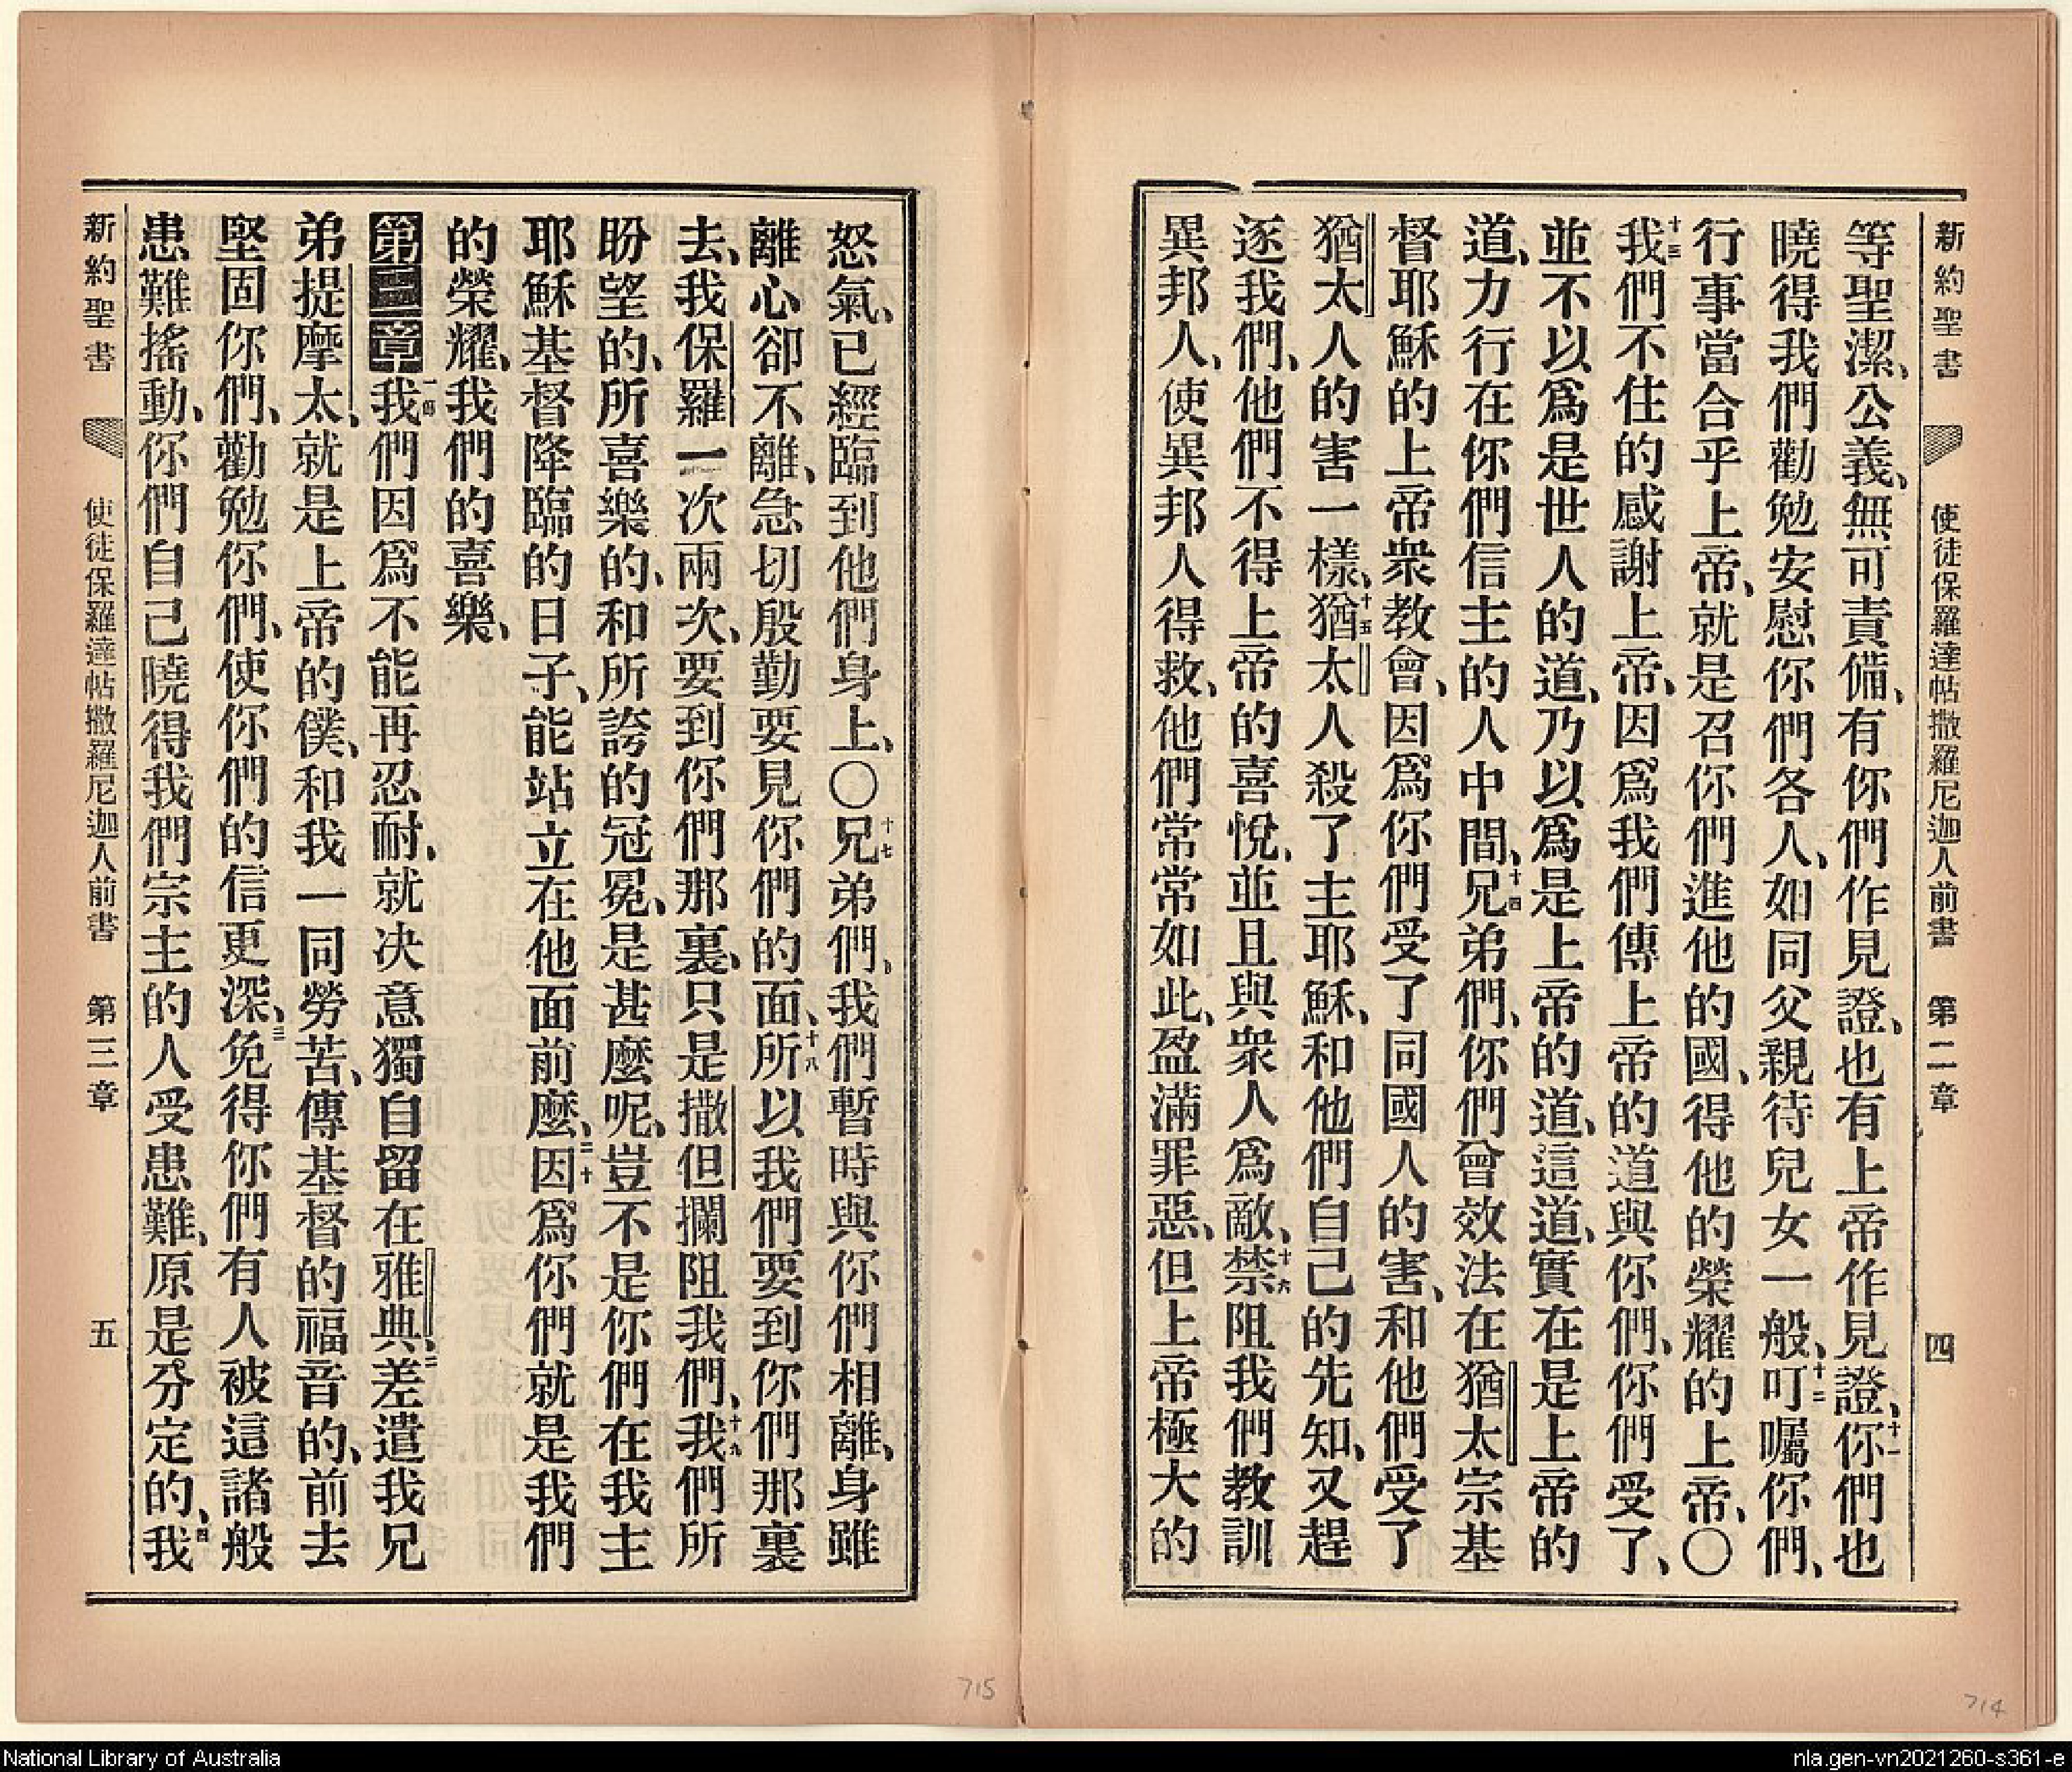 新約聖書 使徒保羅達帖撒羅尼迦人前書 第二章 四
等聖潔、公義、無可責備、有你們作見證、也有上帝作見證、十一你們也
曉得我們勸勉安慰你們各人、如同父親待兒女一般、十二叮囑你們、
行事當合乎上帝、就是召你們進他的國、得他的榮耀的上帝、〇
十三我們不住的感謝上帝、因爲我們傳上帝的道與你們、你們受了、
並不以爲是世人的道、乃以爲是上帝的道、這道、實在是上帝的
道、力行在你們信主的人中間、十四兄弟們、你們曾效法在猶太宗基
督耶穌的上帝衆教會、因爲你們受了同國人的害、和他們受了
猶太人的害一樣、十五猶太人殺了主耶穌、和他們自己的先知、又趕
逐我們、他們不得上帝的喜悅、並且與衆人爲敵、十六禁阻我們教訓
異邦人、使異邦人得救、他們常常如此、盈滿罪惡、但上帝極大的
怒氣、已經臨到他們身上、〇十七兄弟們、我們暫時與你們相離、身雖
離心卻不離、急切殷勤要見你們的面、十八所以我們要到你們那裏
去、我保羅一次兩次、要到你們那裏、只是撒但攔阻我們、十九我們所
盼望的、所喜樂的、和所誇的冠冕、是甚麼呢、豈不是你們在我主
耶穌基督降臨的日子、能站立在他面前麼、二十因爲你們就是我們
的榮耀、我們的喜樂、
第三章 一節我們因爲不能再忍耐、就決意獨自留在雅典、二差遣我兄
弟提摩太、就是上帝的僕、和我一同勞苦、傳基督的福音的、前去
堅固你們、勸勉你們、使你們的信更深、三免得你們有人被這諸般
患難搖動、你們自己曉得我們宗主的人受患難、原是分定的、四我
新約聖書 使徒保羅達帖撒羅尼迦人前書 第三章 五
715
714
National Library of Australia
nla.gen-vn2021260-s361-e